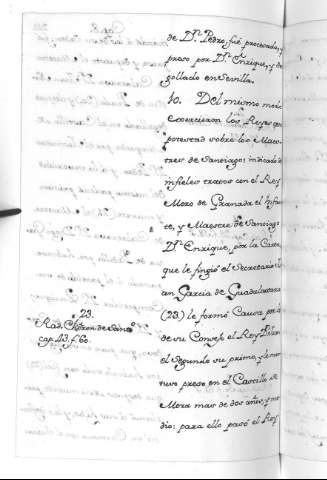 de Dn. Pedro, fué procesado, y
preso por Dn. Enrique, y de
gollado en Sevilla.
10. Del mismo modo
exercieron los Reyes su
potestad sobre los Maes
tres de Santiago: indicado de
infieles tratos con el Rey
Moro de Granada el Infan
te, y Maestre de Santiago
Dn. Enrique, por la Carta
que le fingió el Secretario
an Garcia de Guadalaxara
(23.) le formó Causa
de su Consejo el Rey Dn. Juan
el Segundo su primo, y le man
tuvo preso en el Castillo de
Mora mas de dos años, y me
dio: para ello pasó el Rey
23.
Rad. Chron. de Santo.
cap. 43. f. 60.